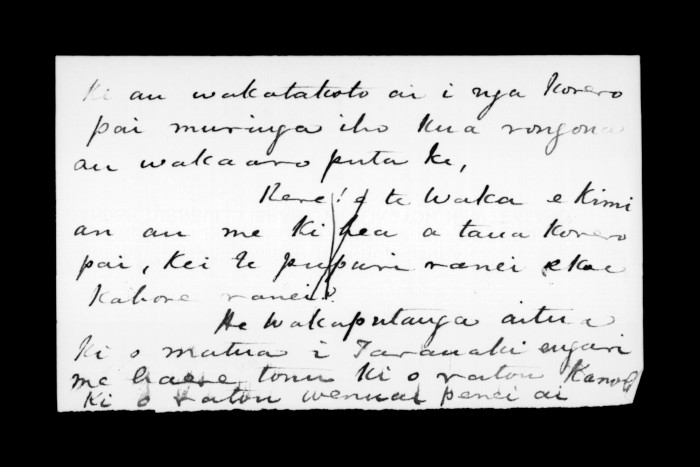 Ki au wakatakoto ai i nga Korero
pai muringa iho Kua rongona
au wakaaro puta ke,
Kere! te Waka e Kimi
an au me Ki hea a taua Korero
pai, Kei te pupuri ranei e koe
Kahore ranei?
He Wakaputanga aitua
Ki o matua i Taranaki engari
me haere tonu Ki o ratou
Ki o ratou wenua penei ai